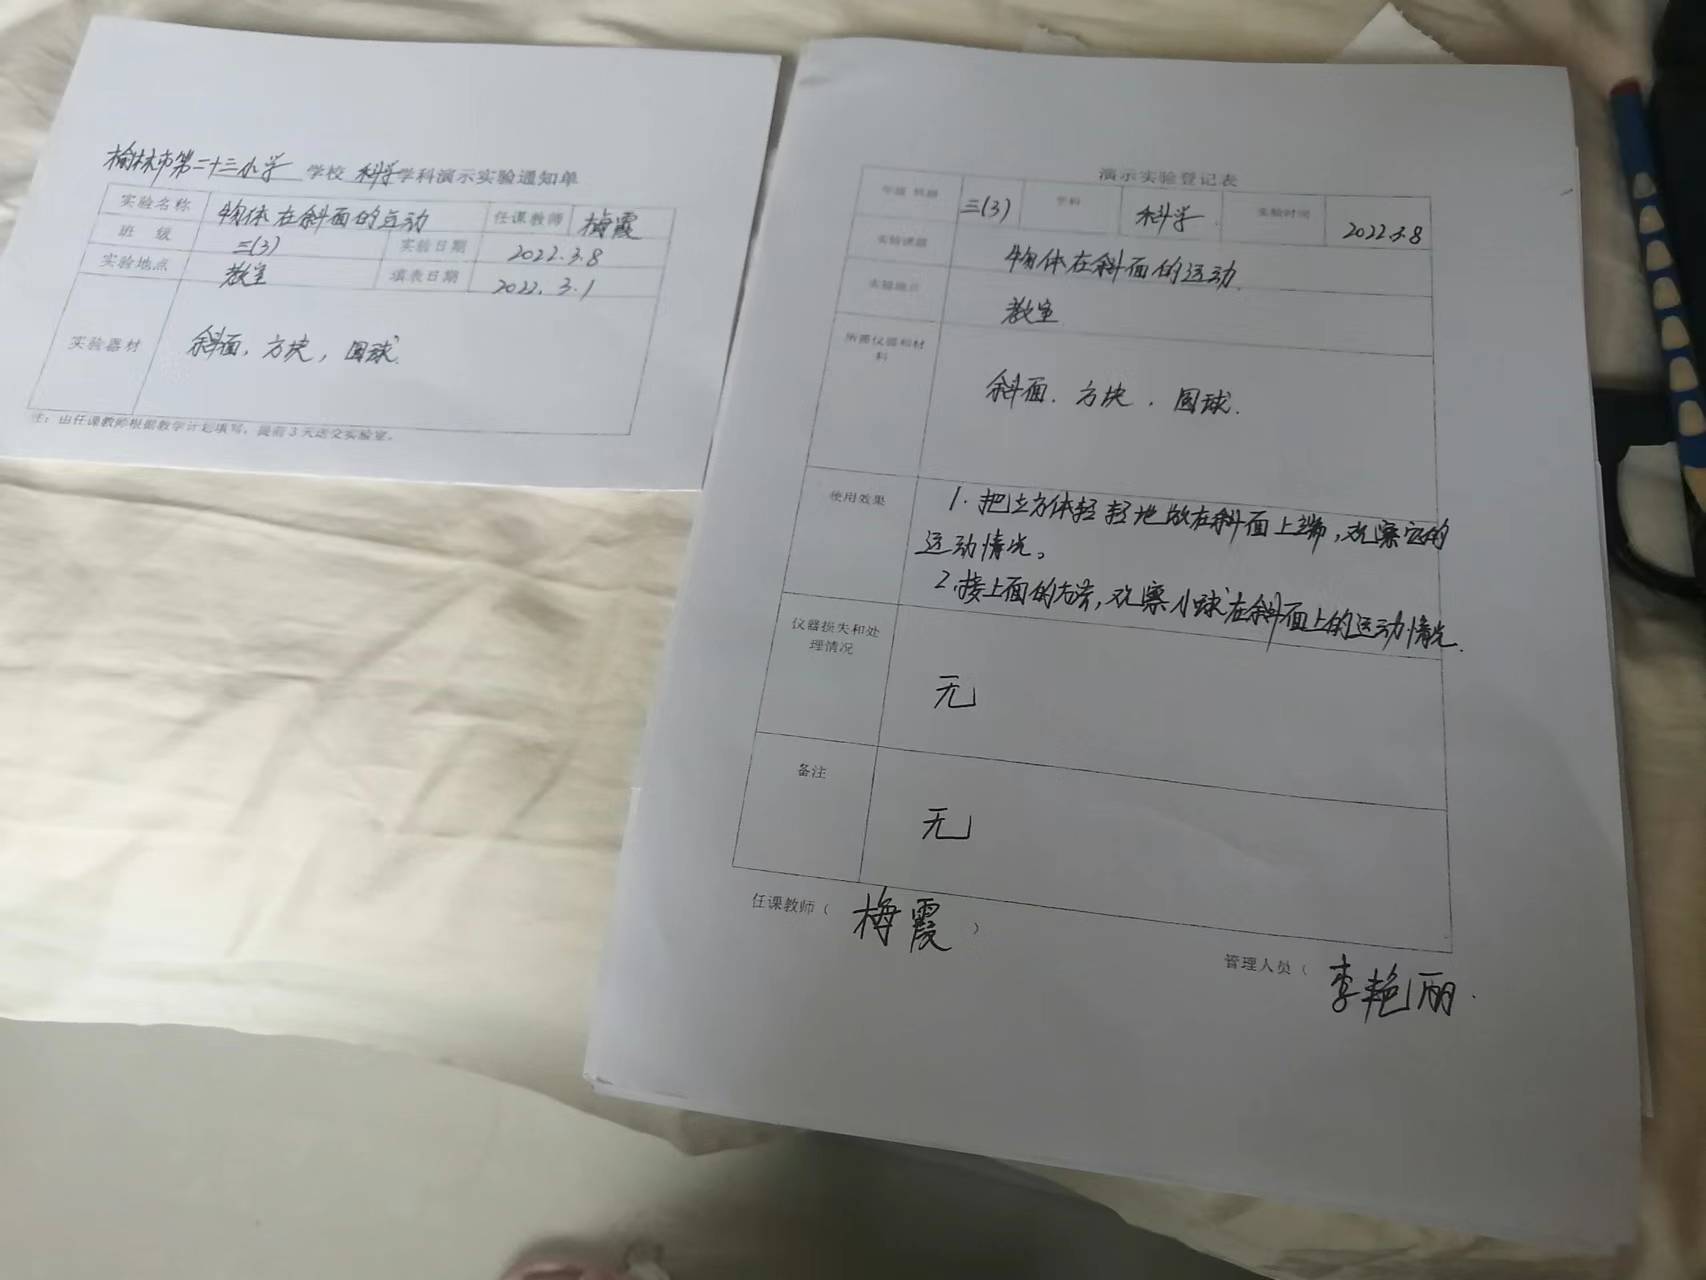 榆林市第二十三小学 学校 科学 学科演示实验通知单
实验名称 物体在斜面的运动 任课教师 梅霞
班 级 三(3) 实验日期 2022.3.8
实验地点 教室 填表日期 2022.3.1
实验器材 斜面,方块,圆球.
注:由任课教师根据教学计划填写,提前3天送交实验室。
演示实验登记表
年级 班级 三(3) 学科 科学 实验时间 2022.3.8
实验课题 物体在斜面的运动.
实验地点 教室
所需仪器和材
料
斜面.方块.圆球.
使用效果 1.把立方体轻轻地放在斜面上端,观察它的
运动情况。
2.按上面的方法,观察小球在斜面上的运动情况.
仪器损失和处
理情况
无
备注
无
任课教师( 梅霞 )
管理人员( 李艳丽.